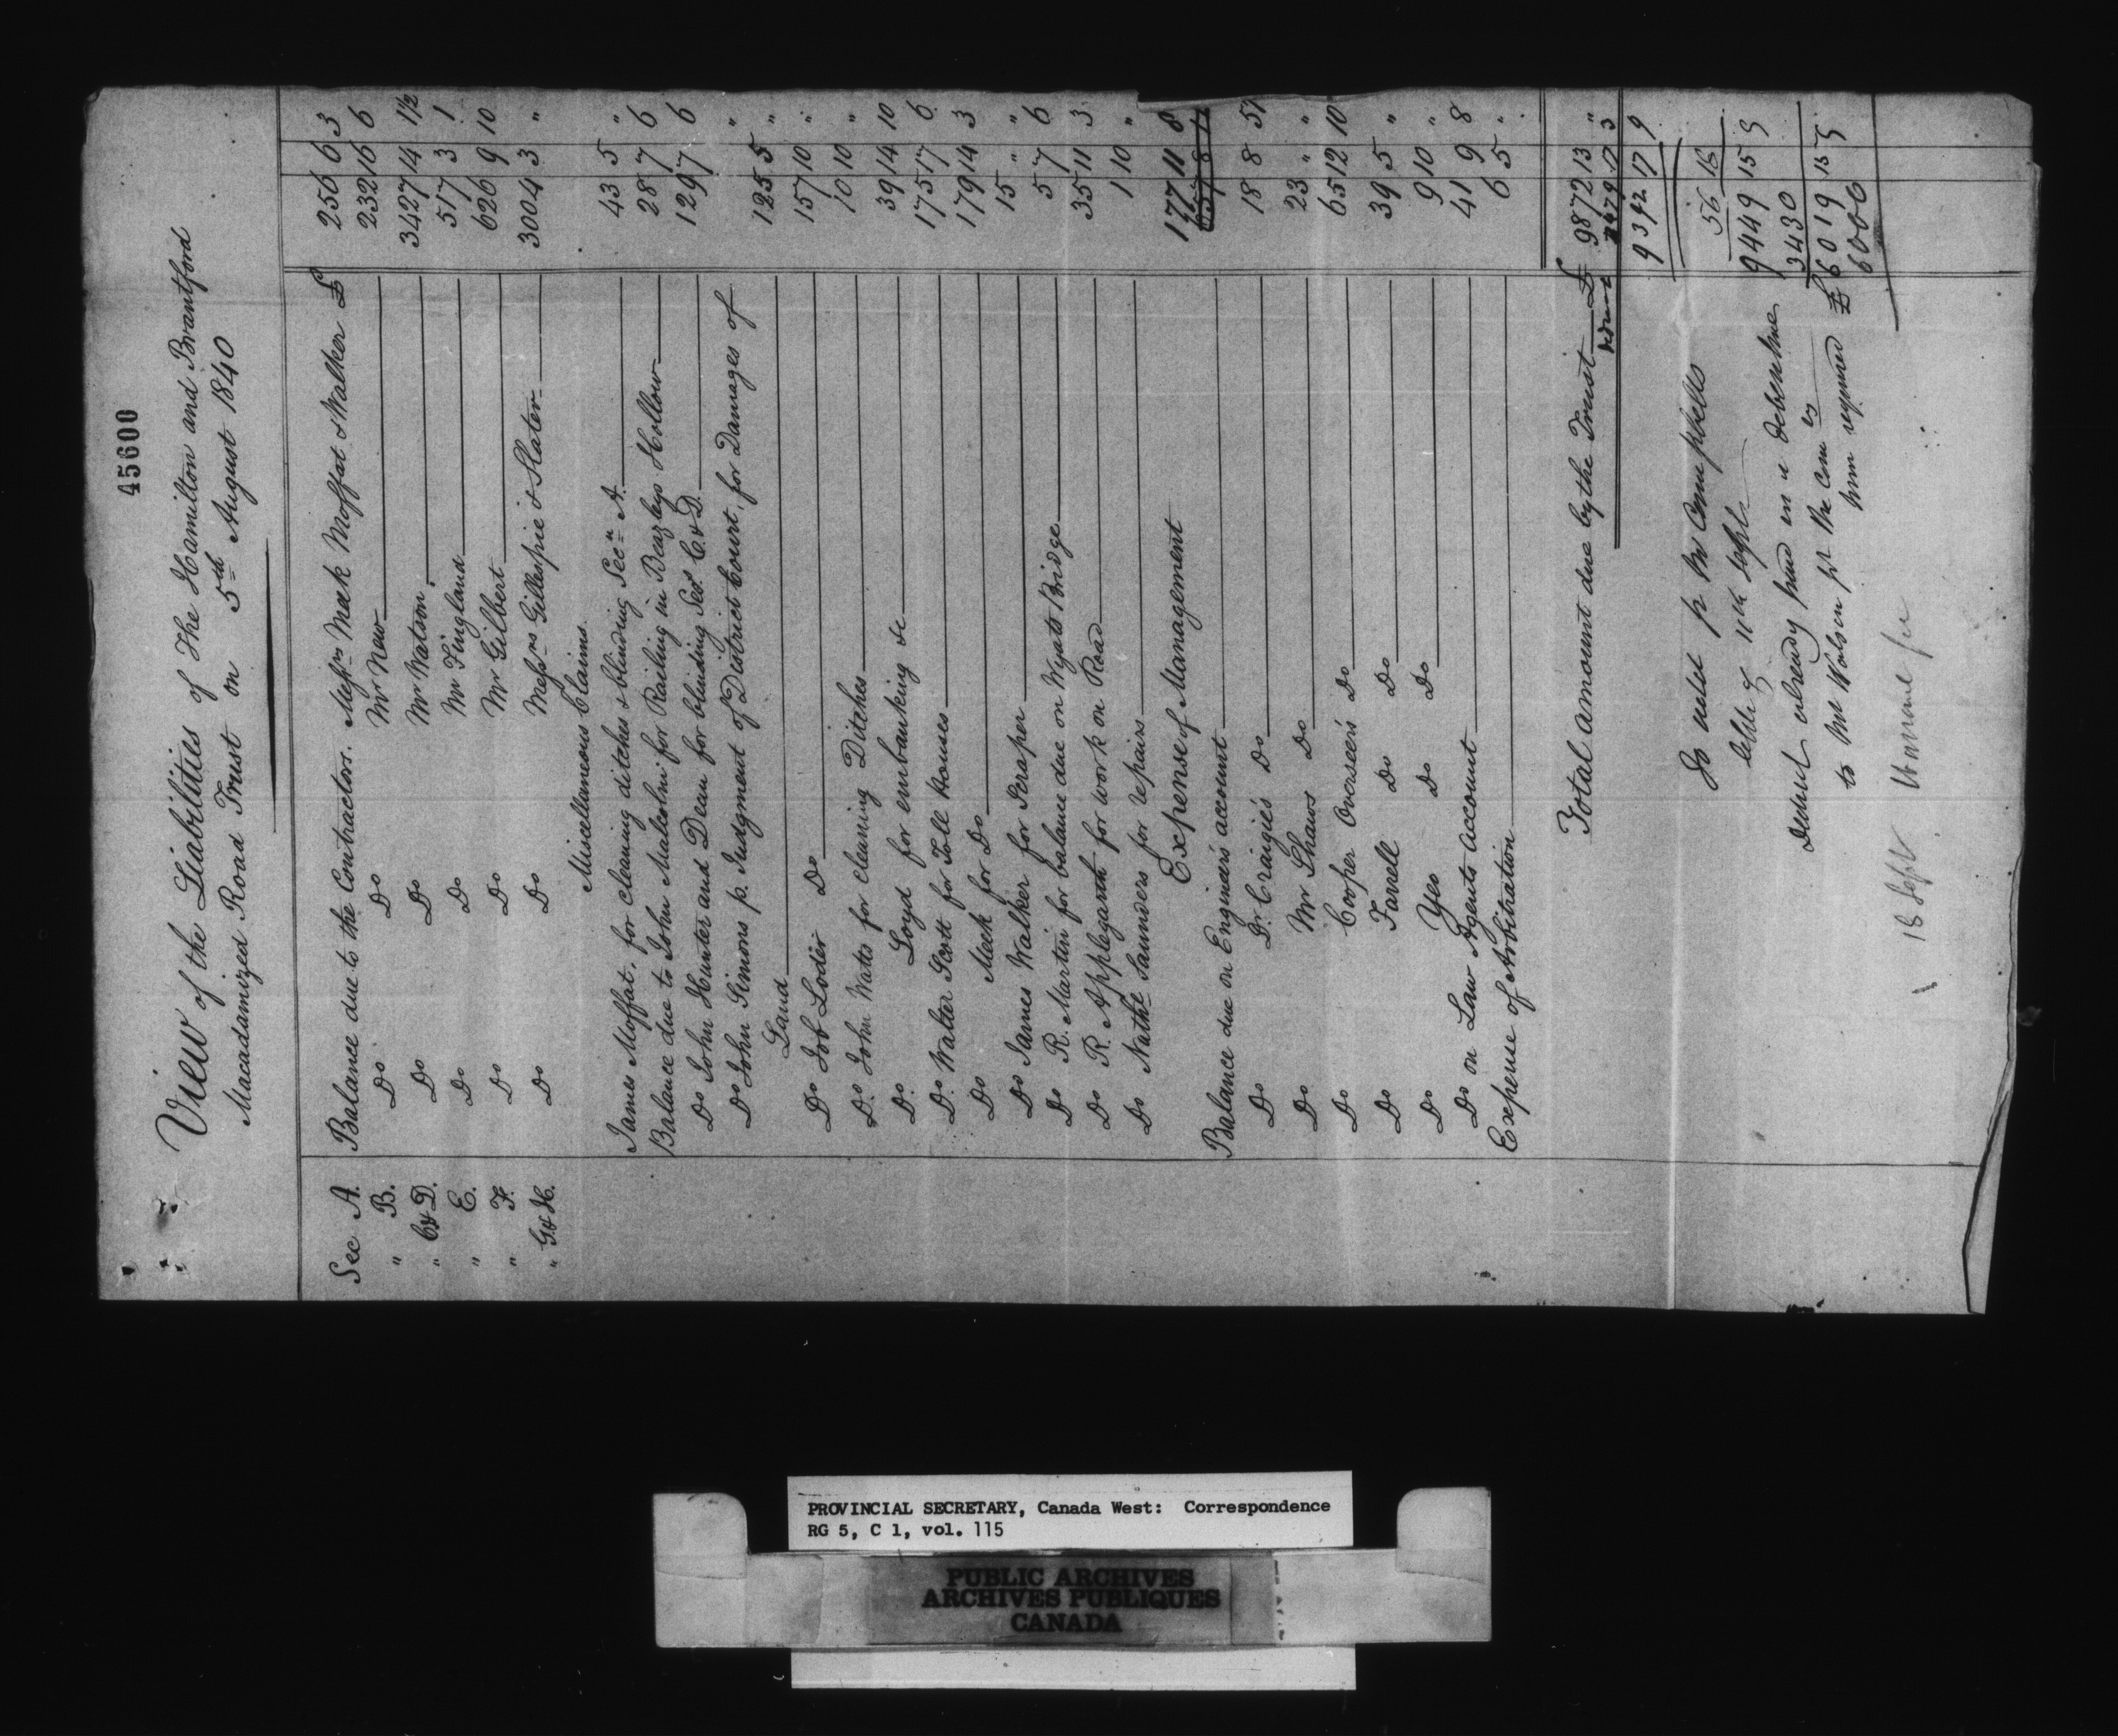 45600
View of the Liabilities of The Hamilton and Brantford
Macadamized Road Trust on 5th August 1840
Sec A. Balance due to the Contractors. Messrs Meek Moffat & Walker £ 256 6 3
" B. Do Do Mr New 232 16 6
" C&D. Do Do Mr Watson 3427 14 1½
" E. Do Do Mr Fingland 517 3 1
" F. Do Do Mr Gilbert 626 9 10
" G&H. Do Do Messrs Gillespie & Slater 3004 3 "
Miscellaneous Claims
James Moffat, for cleaning ditches & blinding Secn A. 43 5 "
Balance due to John Malcolm for Railing in Beazleys Hollow 28 7 6
Do John Hunter and Dean for blinding Secs C&D. 129 7 6
Do John Simons p. Judgment of District Court, for Damages of "
Land 125 5 "
Do Job Loder Do 157 10 "
Do. John Watts for cleaning Ditches 10 10 "
Do. Loyd for embanking &c 39 14 10
Do. Walter Scott for Toll Houses 175 17 6
Do Meek for Do 179 14 3
Do James Walker for Scraper 15 " "
Do R. Martin for balance due on Wyats Bridge 5 7 6
Do R. Applegarth for work on Road 35 11 3
Do Nathl Saunders for repairs 1 10 "
Expense of Management
Balance due on Engineers account 177 11 8
Do Dr. Craigie's Do 18 8 5½
Do Mr Shaws Do 23 " "
Do Cooper Overseer's Do 65 12 10
Do Farrell Do Do 39 5 "
Do Yeo Do Do 9 10 "
Do on Law Agents account 41 9 8
Expense of Arbitration 6 5 "
Total amount due by the Trust £ 9872 13 "
9392 17 9
56 18
9449 15 9
Deduct already paid in debenture 3430
to Mr Watson pr the Com £ 6019 15 9
sum required 6000
18 Sept
PROVINCIAL SECRETARY, Canada West: Correspondence
RG 5, C 1, vol. 115
PUBLIC ARCHIVES
ARCHIVES PUBLIQUES
CANADA